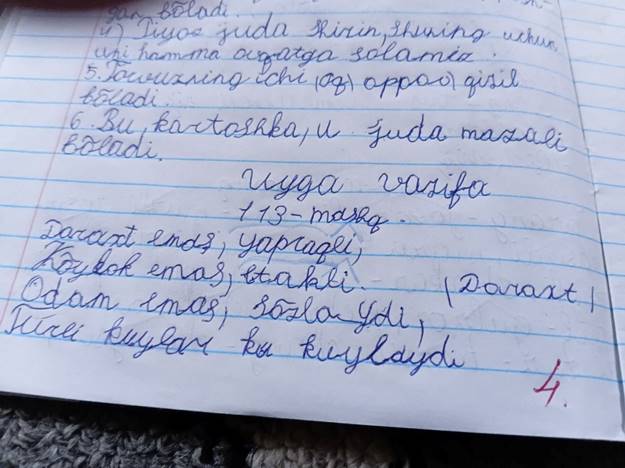 gan bōladi.
4) Piyoz juda shirin, shuning uchun
uni hamma ovqatga solamiz.
5. Tarvuzning ichi (oq) oppoq) qizil
bōladi.
6. Bu kartoshka, u juda mazali
bōladi.
Uyga vazifa
113-mashq.
Daraxt emas, yapraqli,
Kōylok emas, etakli. (Daraxt)
Odam emas, sōzlaydi,
Turli kuylar ku kuylaydi
4.